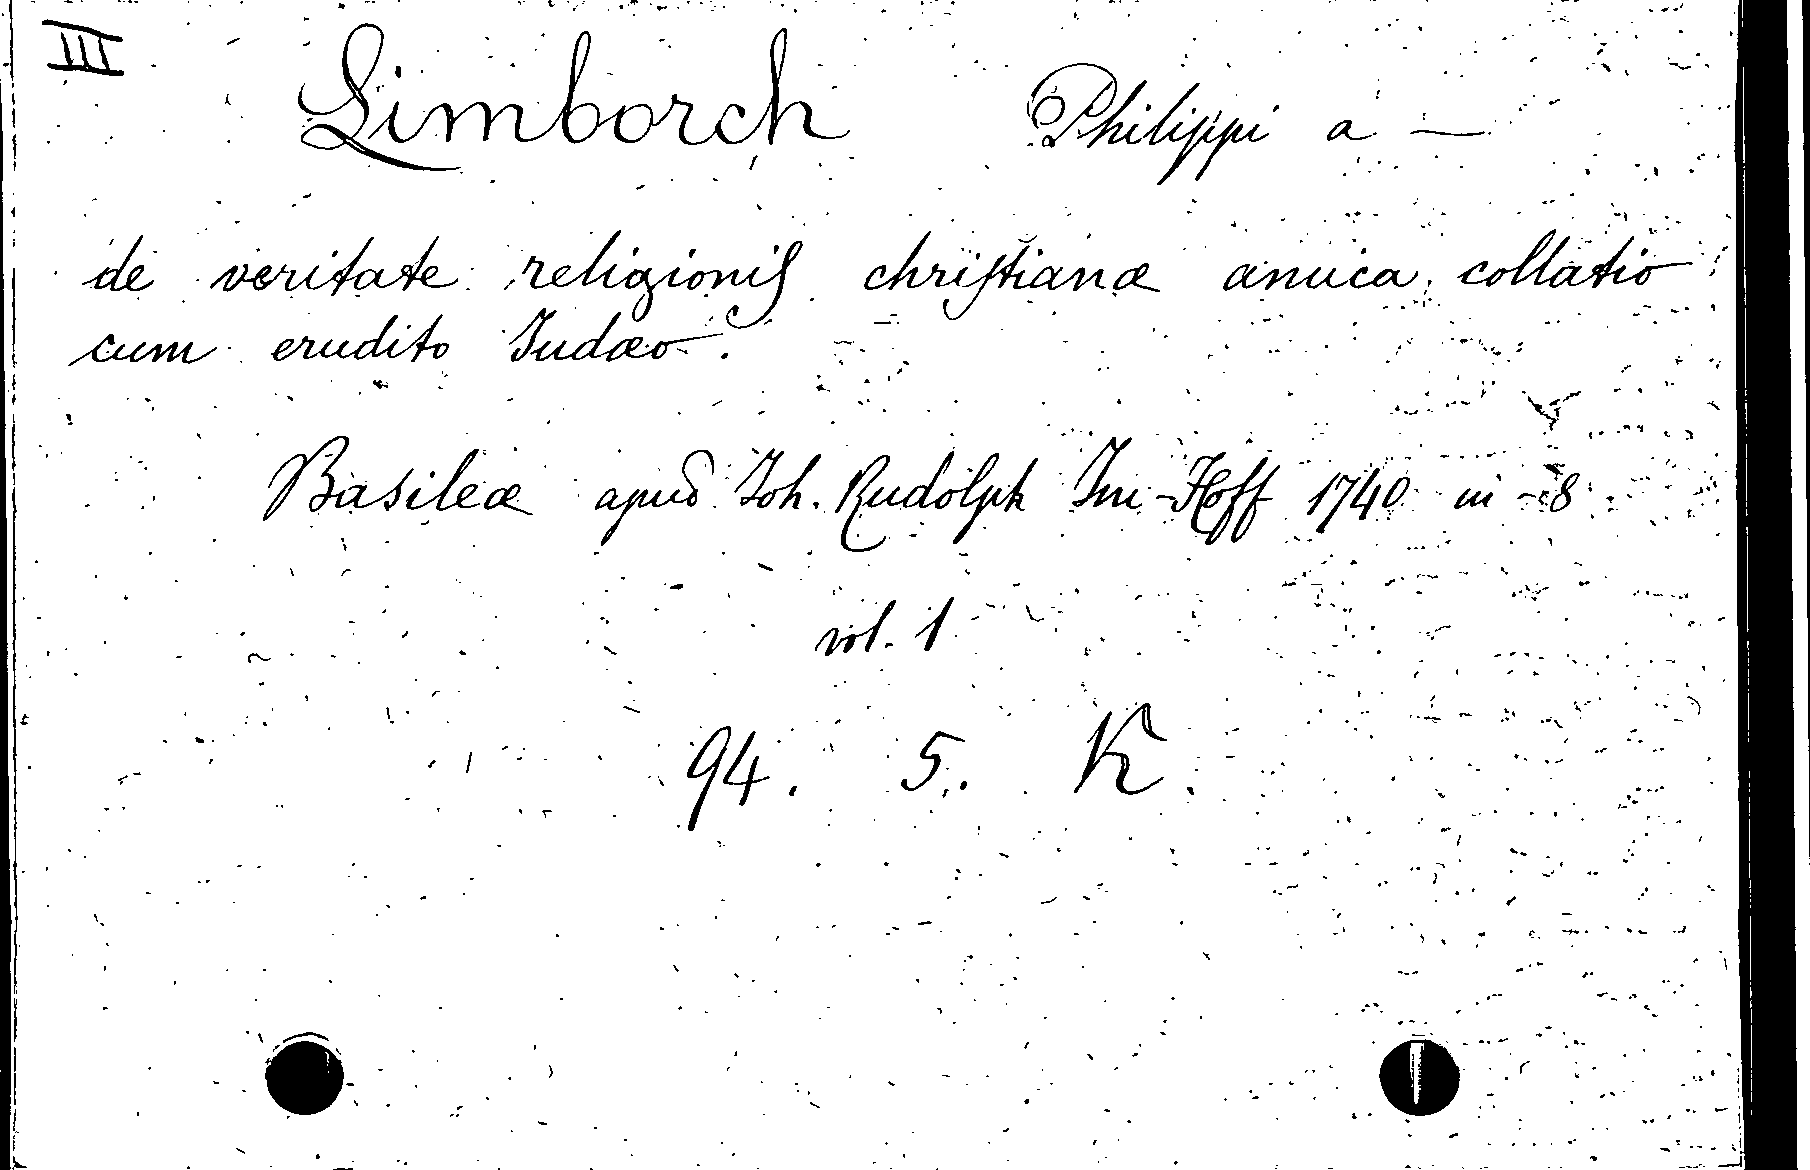 III
Limborch Philippi a —
de veritate religionis christianæ amica collatio
cum erudito Judæo.
Basileæ apud Joh. Rudolph Im-Hoff 1740 in-8
vol. 1
94. 5. K.